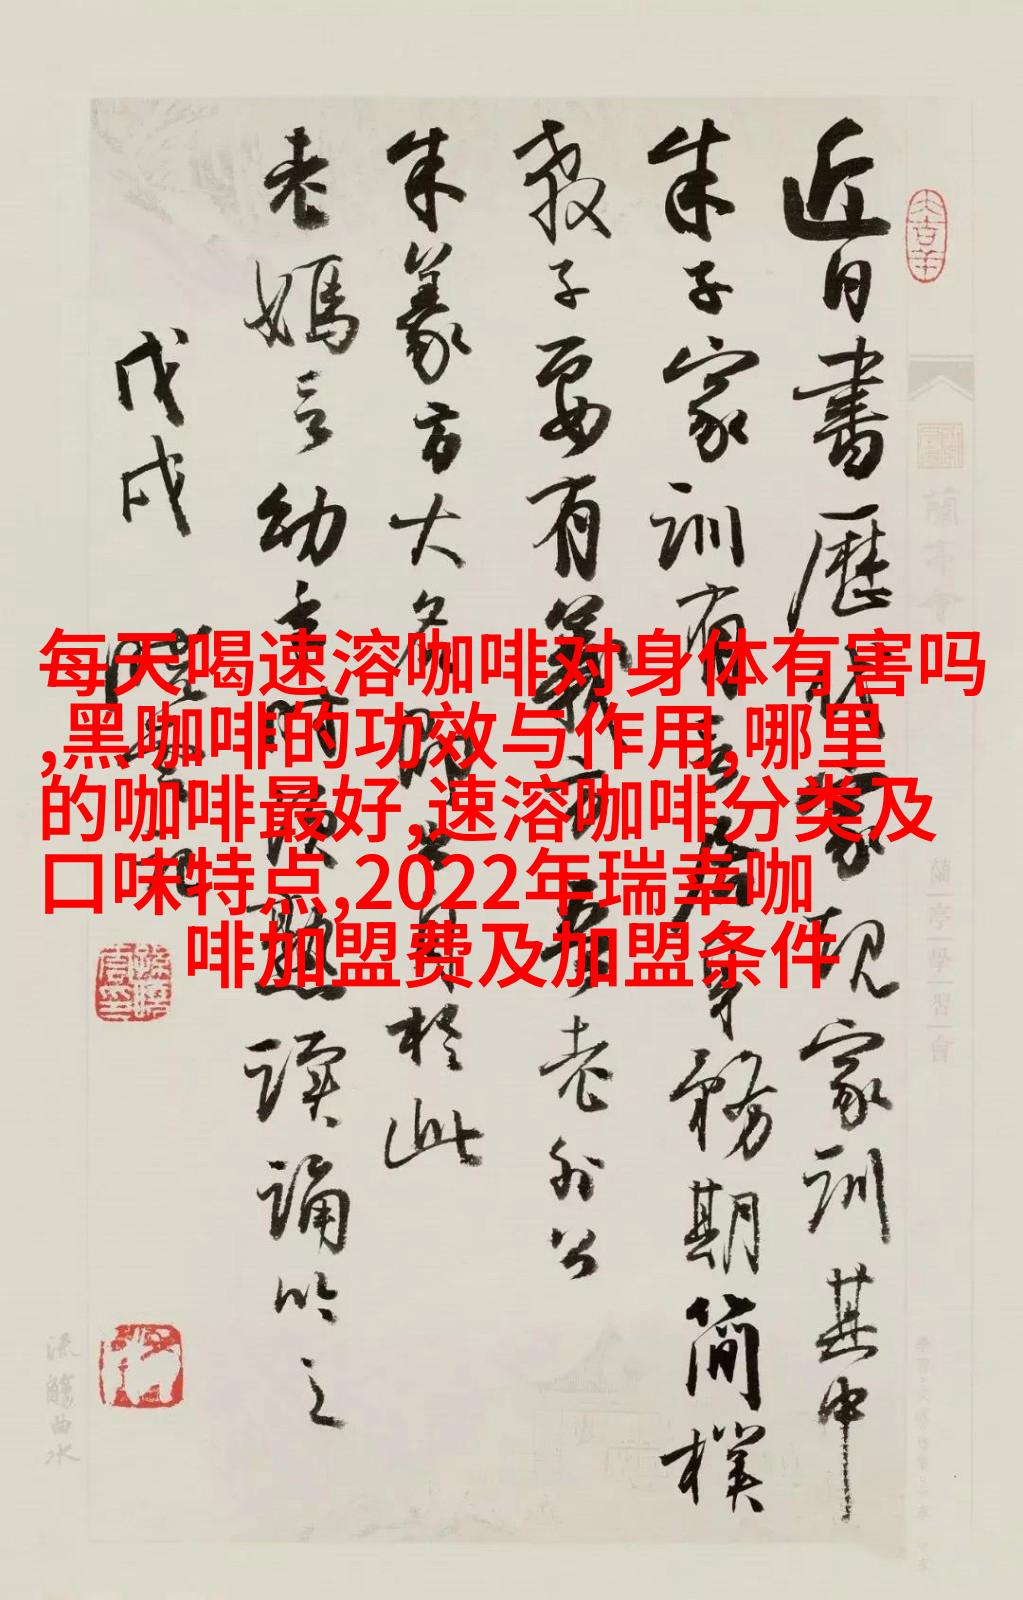 每天喝速溶咖啡对身体有害吗
,黑咖啡的功效与作用,哪里
的咖啡最好,速溶咖啡分类及
口味特点,2022年瑞幸咖
啡加盟费及加盟条件
近日書歷代家規家訓其中
朱子家訓有言居身務期簡樸
教子要有義方嘗老外公
朱篆方大名即出於此
老媽言幼年時須熟讀誦吟之
戊戌
蘭亭學習會
流觴曲水